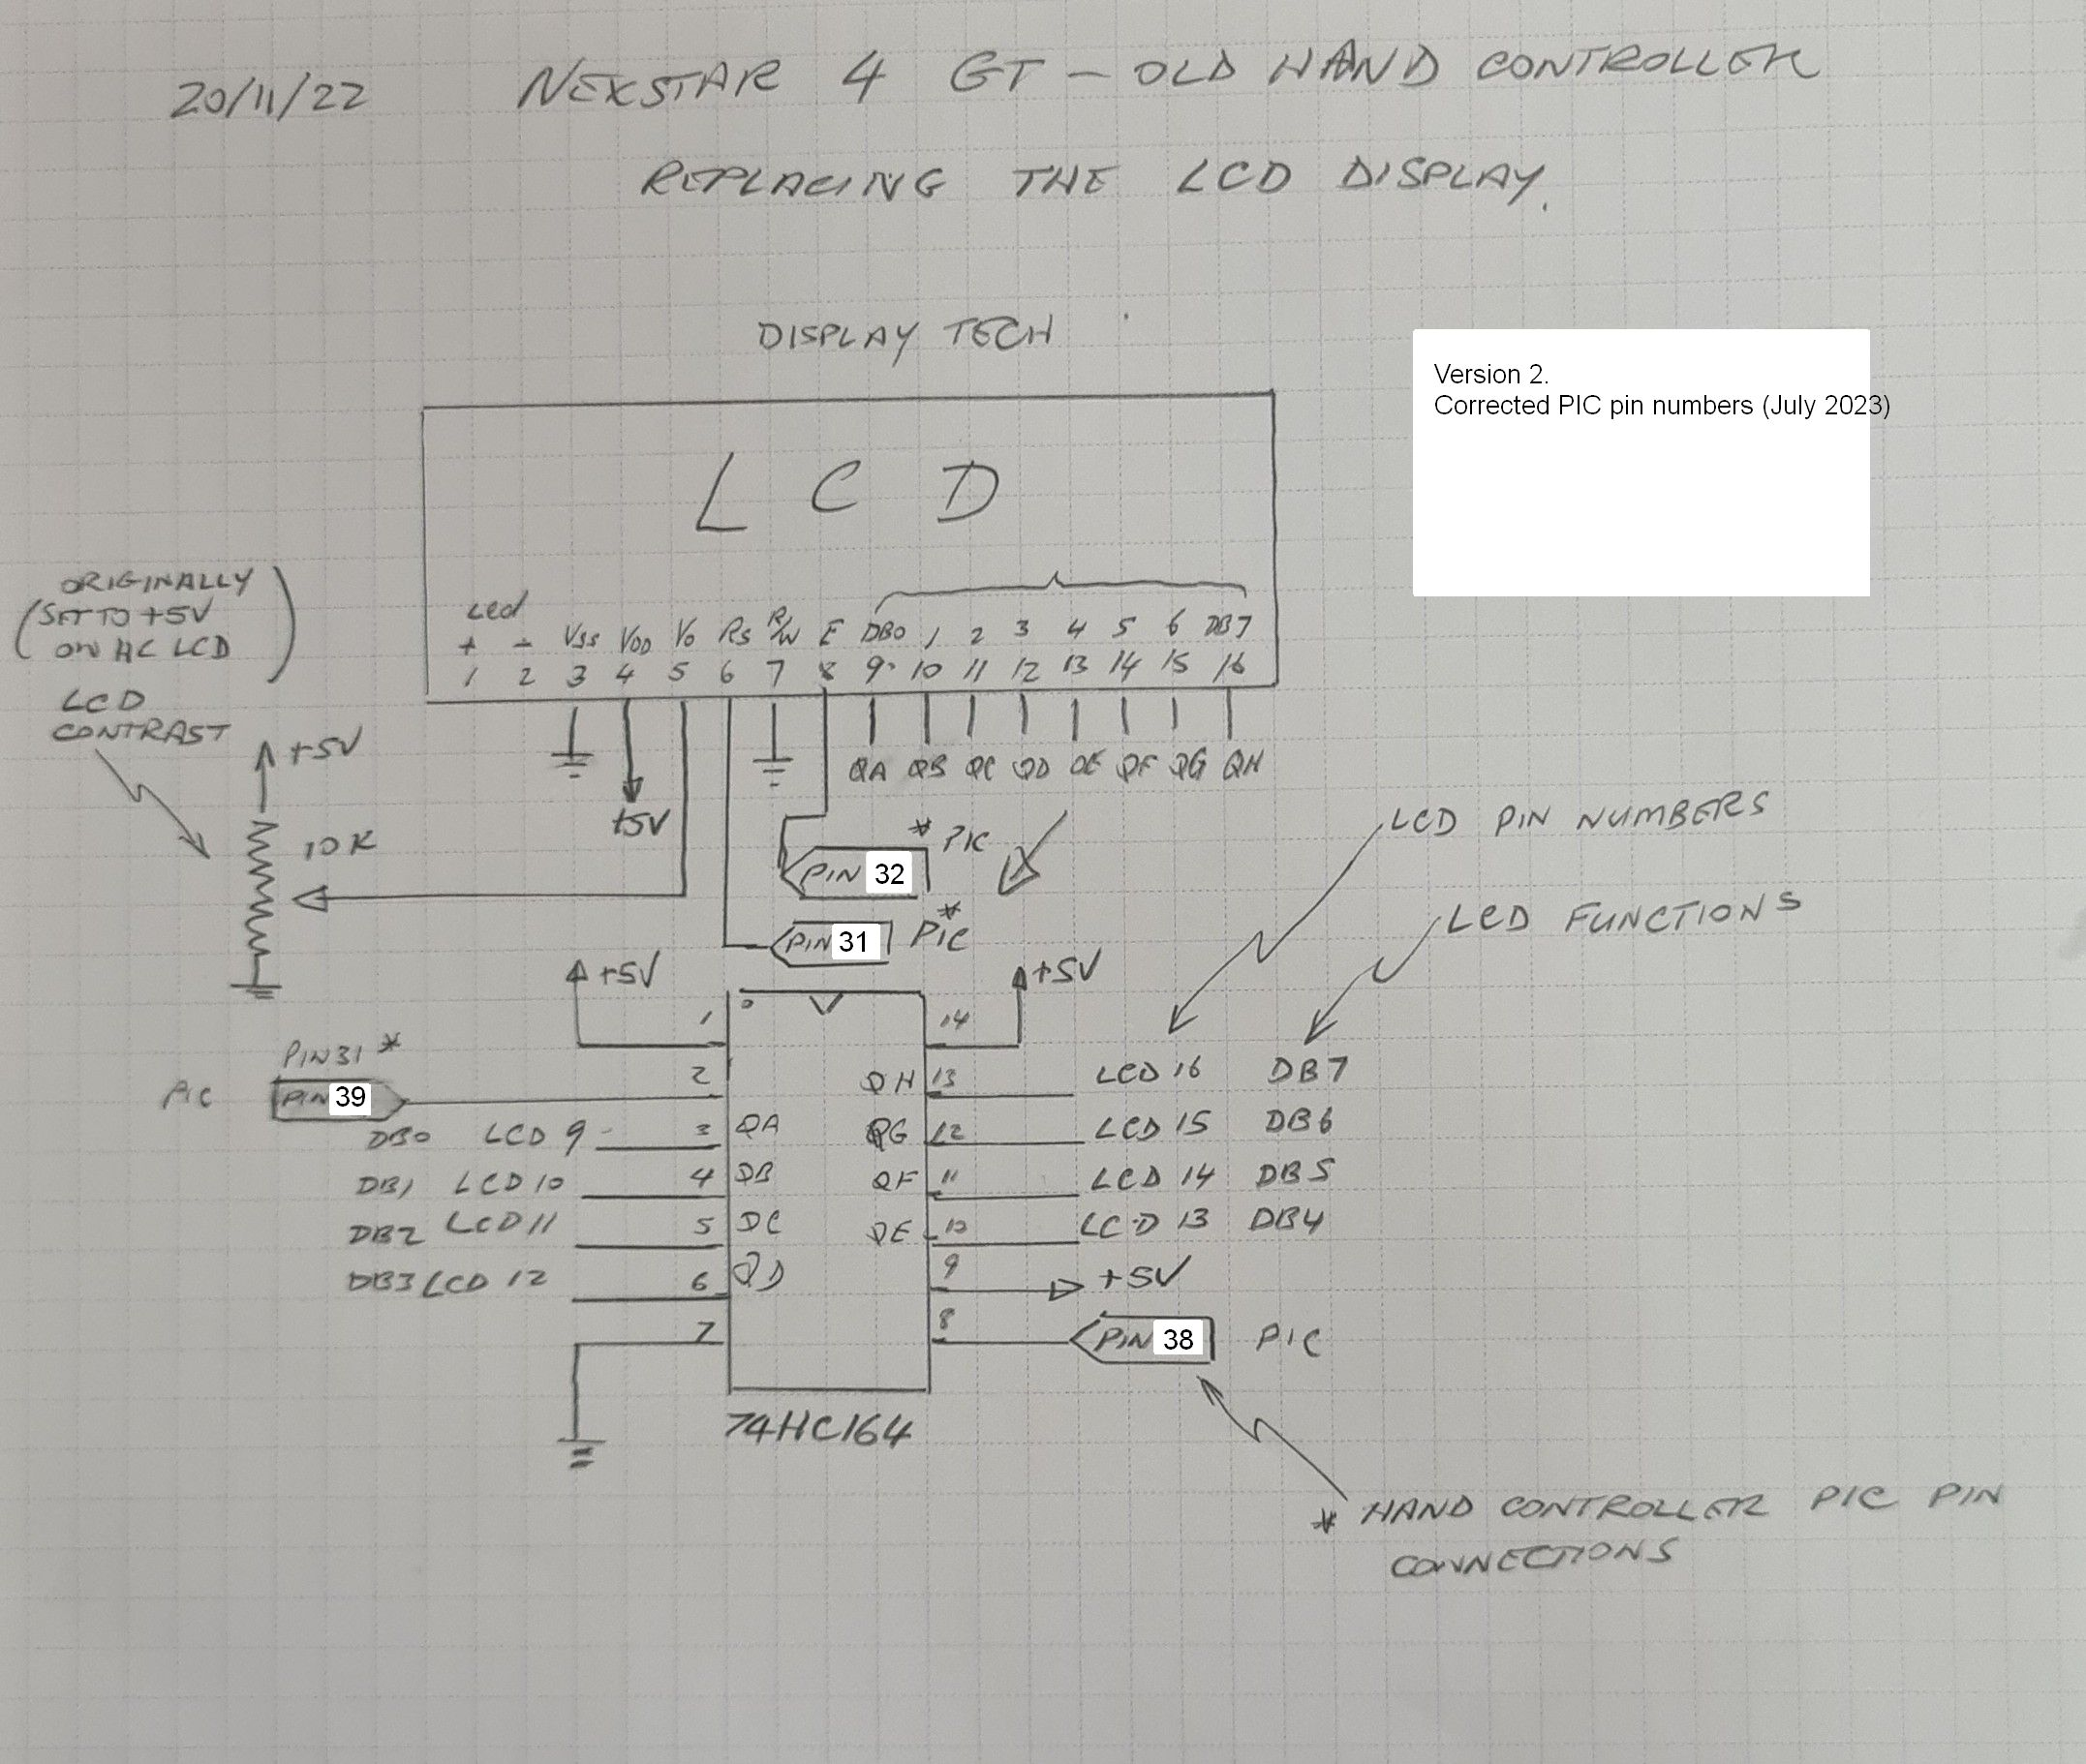 20/11/22 NEXSTAR 4 GT - OLD HAND CONTROLLER
REPLACING THE LCD DISPLAY.
DISPLAY TECH
Version 2.
Corrected PIC pin numbers (July 2023)
LCD
ORIGINALLY
(SET TO +5V
ON HC LCD)
LCD
CONTRAST
led
+ - VSS VDD VO RS R/W E DB0 1 2 3 4 5 6 DB7
1 2 3 4 5 6 7 8 9 10 11 12 13 14 15 16
+5V
10K
+5V
QA QB QC QD QE QF QG QH
* PIC
PIN 32
PIN 31 PIC *
LCD PIN NUMBERS
LCD FUNCTIONS
+5V
+5V
1 14
PIN31 *
PIC PIN 39
2 QH 13 LCD 16 DB7
DB0 LCD 9 3 QA QG 12 LCD 15 DB6
DB1 LCD 10 4 QB QF 11 LCD 14 DB5
DB2 LCD 11 5 QC QE 10 LCD 13 DB4
DB3 LCD 12 6 QD 9 +5V
7 8 PIN 38 PIC
74HC164
* HAND CONTROLLER PIC PIN
CONNECTIONS